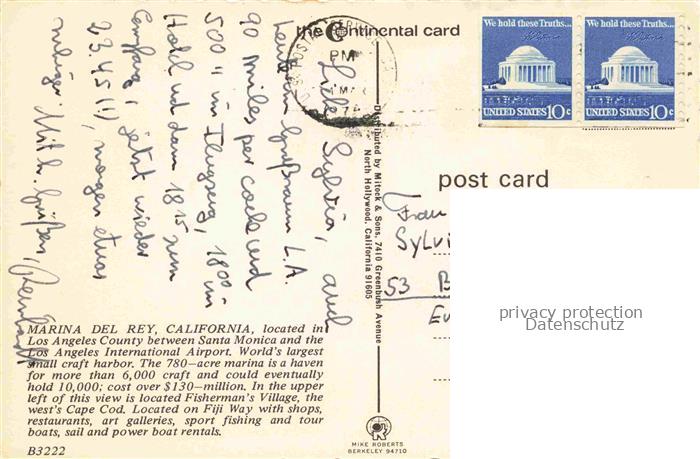 the Continental card
We hold these Truths...
UNITED STATES 10c
We hold these Truths...
UNITED STATES 10c
PM
post card
Liebe Sylvia, auch
heute im Großraum L.A.
90 miles per car und
500" im Flugzeug, 18⁰⁰ im
Hotel und dann 18¹⁵ zum
Empfang, jetzt wieder
23.45 (!), morgen etwas
ruhiger. Mit h. Grüßen,
Frau
Sylvi
53 B
Eu
privacy protection
Datenschutz
Distributed by Mitock & Sons, 7410 Greenbush Avenue
North Hollywood, California 91605
MARINA DEL REY, CALIFORNIA, located in
Los Angeles County between Santa Monica and the
Los Angeles International Airport. World's largest
small craft harbor. The 780—acre marina is a haven
for more than 6,000 craft and could eventually
hold 10,000; cost over $130—million. In the upper
left of this view is located Fisherman's Village, the
west's Cape Cod. Located on Fiji Way with shops,
restaurants, art galleries, sport fishing and tour
boats, sail and power boat rentals.
B3222
MIKE ROBERTS
BERKELEY 94710